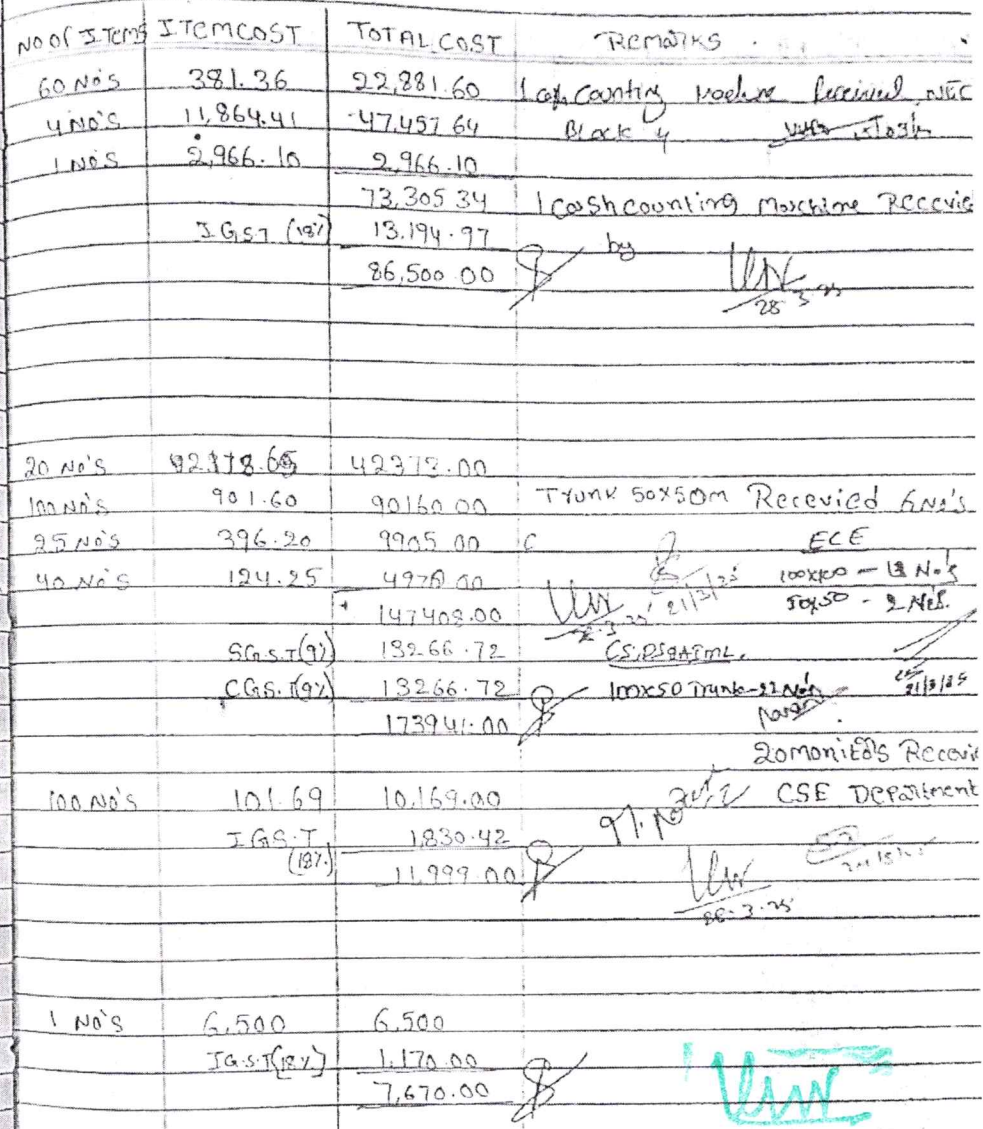 NO Of ITEMS ITEMCOST TOTAL COST REMARKS
60 No's 381.36 22,881.60 1 cash Counting Received NEC
4 No's 11,864.41 47,457 64 Block 4
1 No's 2,966.10 2,966.10
73,305 34 1 cash counting Machine Recevie
I.G.S.T (18%) 13,194.97 by
86,500.00
28 3 25
20 No's 42373.00
100 No's 901.60 90160.00 Trunk 50x50m Recevied 6No's
25 No's 396.20 9905.00 ECE
40 No's 124.25 4970.00 100x100 - No's
147408.00 21/3/25 50x50 - 2 No's.
SG.S.T(9%) 13266.72
CGS.T(9%) 13266.72 100x50 Trunk-22 No's 21/3/25
173941.00
20 monitors Recevie
100 No's 101.69 10,169.00 CSE Department
IGS.T (18%) 1,830.42
11,999.00
28.3.25
1 No's 6,500 6,500
IG.S.T(18%) 1,170.00
7,670.00